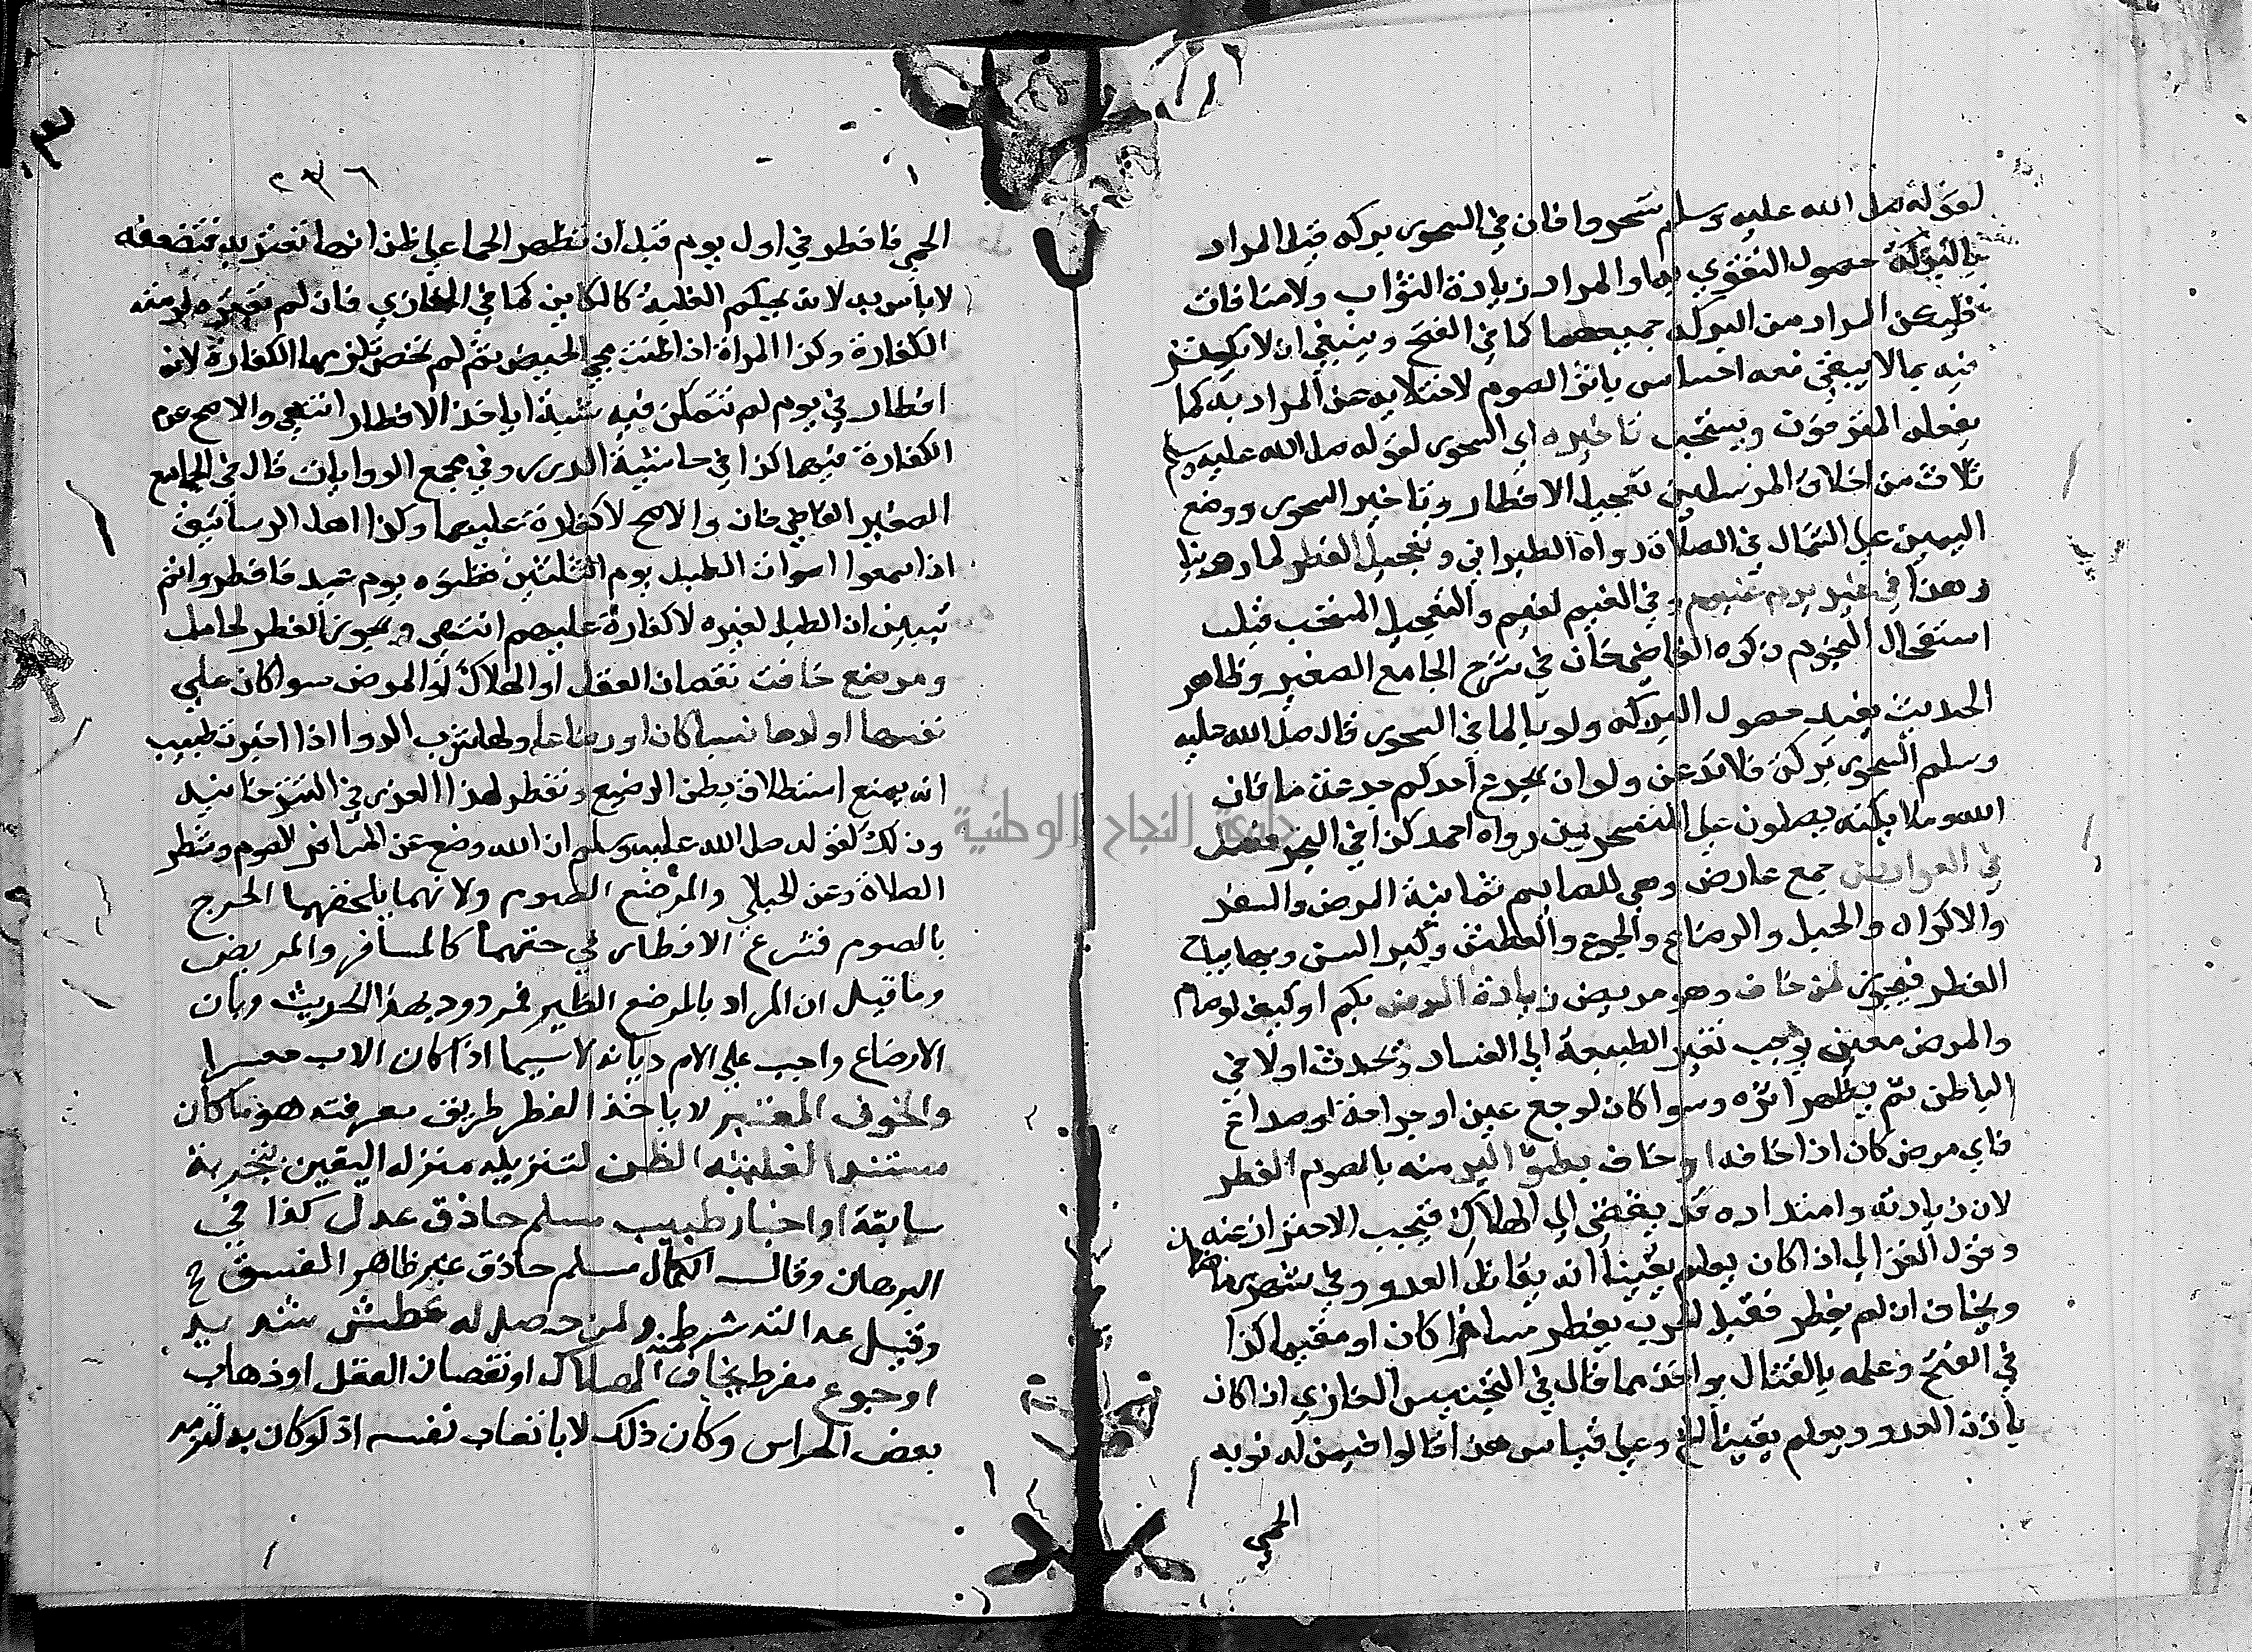 لقوله صلى الله عليه وسلم تسحروا فان في السحور بركه قيل المراد
بالبركة حصول التقوي بها والمراد زيادة الثواب ولا منافات
فليكن المراد من البركه جميعهما كما في الفتح وينبغي ان لا يكثر
فيه بما لا يبقي معه احساس باثر الصوم لاختلابه عن المراد به كما
يفعله المترفون ويستحب تاخيره اي السحور لقوله صلى الله عليه وسلم
ثلاث من اخلاق المرسلين تعجيل الافطار وتاخير السحور ووضع
اليمين علي الشمال في الصلاة رواه الطبراني وتعجيل الفطر لما روينا
وهذا في غير يوم غيم وفي الغيم والتعجيل المستحب قبل
اشتباك النجوم ذكره القاضي خان في شرح الجامع الصغير وظاهر
الحديث يفيد حصول البركه ولو بالماء في السحور قال صلى الله عليه
وسلم السحور بركة فلا تدعن ولو ان يجرع احدكم جرعة ما فان
الله وملايكته يصلون علي المتسحرين رواه احمد كذا في البحر فصل
في العوارض جمع عارض وهي للصايم ثمانية المرض والسفر
والاكراه والحبل والرضاع والجوع والعطش وكبر السن وبها يباح
الفطر فيجوز لمن خاف وهو مريض زيادة المرض بكم او كيف لو صام
والمرض معني يوجب تغير الطبيعة الي الفساد ويحدث اولا في
الباطن ثم يظهر اثره وسوا كان لوجع عين او جراحة او صداع
فاي مرض كان اذا خافه او خاف بطؤ البرء منه بالصوم الفطر
لان زيادته وامتداده قد يفضي الي الهلاك فيجب الاحتراز عنه
وقول الغزالي اذا كان يعلم يقينا انه يقاتل العدو وفي شهر رمضان
ويخاف ان لم يفطر فقبل الحرب يفطر مسافرا كان او مقيما كذا
في الفتح وعلمه بالقتال بواخذ مما قال في التجنيس الغازي اذا كان
بازا العدو ويعلم يقينا الخ وعلي قياس هذا قالوا فيمن له نوبه
الحمي
٢٣٦
الحمي فافطر في اول يوم قبل ان تظهر الحما علي ظن انها تعتريه فتضعفه
لا باس به لانه بحكم الغلبة كالكاين كما في الغازي فان لم تعتره لزمته
الكفارة وكذا المراة اذا ظنت مجي الحيض ثم لم تحض تلزمها الكفارة لانه
افطار في يوم لم تتمكن فيه شبهة اباحة الافطار انتهي والاصح عدم
الكفارة فيهما كذا في حاشية الدرر وفي مجمع الروايات قال في الجامع
الصغير القاضي خان والاصح لا كفارة عليهما وكذا اهل الرساتيق
اذا سمعوا اصوات الطبل يوم الثلاثين فظنوه يوم عيد فافطروا ثم
تبين ان الطبل لغيره لا كفارة عليهم انتهي ويجوز الفطر لحامل
ومرضع خافت نقصان العقل او الهلاك او المرض سوا كان علي
نفسها او ولدها نسبا كان او رضاعا ولها شرب الدوا اذا اخبر طبيب
انه يمنع استطلاق بطن الرضيع وتفطر لهذا العذر في التترخانيه
وذلك لقوله صلى الله عليه وسلم ان الله وضع عن المسافر الصوم وشطر
الصلاة وعن الحبلي والمرضع الصوم ولانهما يلحقهما الحرج
بالصوم فشرع الافطار في حقهما كالمسافر والمريض
وما قيل ان المراد بالمرضع الظير فمردود بهذا الحديث وبان
الارضاع واجب علي الام ديانه لا سيما اذا كان الاب معسرا
والخوف المعتبر لاباحة الفطر طريق معرفته هو ما كان
مستندا لغلبة الظن لتنزيله منزله اليقين بتجربة
سابقة او اخبار طبيب مسلم حاذق عدل كذا في
البرهان وقال الكمال مسلم حاذق غير ظاهر الفسق
وقيل عدالته شرط ولمن حصل له عطش شديد
او جوع مفرط يخاف منه الهلاك او نقصان العقل او ذهاب
بعض الحواس وكان ذلك لا باتعاب نفسه اذ لو كان به لزمه
جامعة النجاح الوطنية